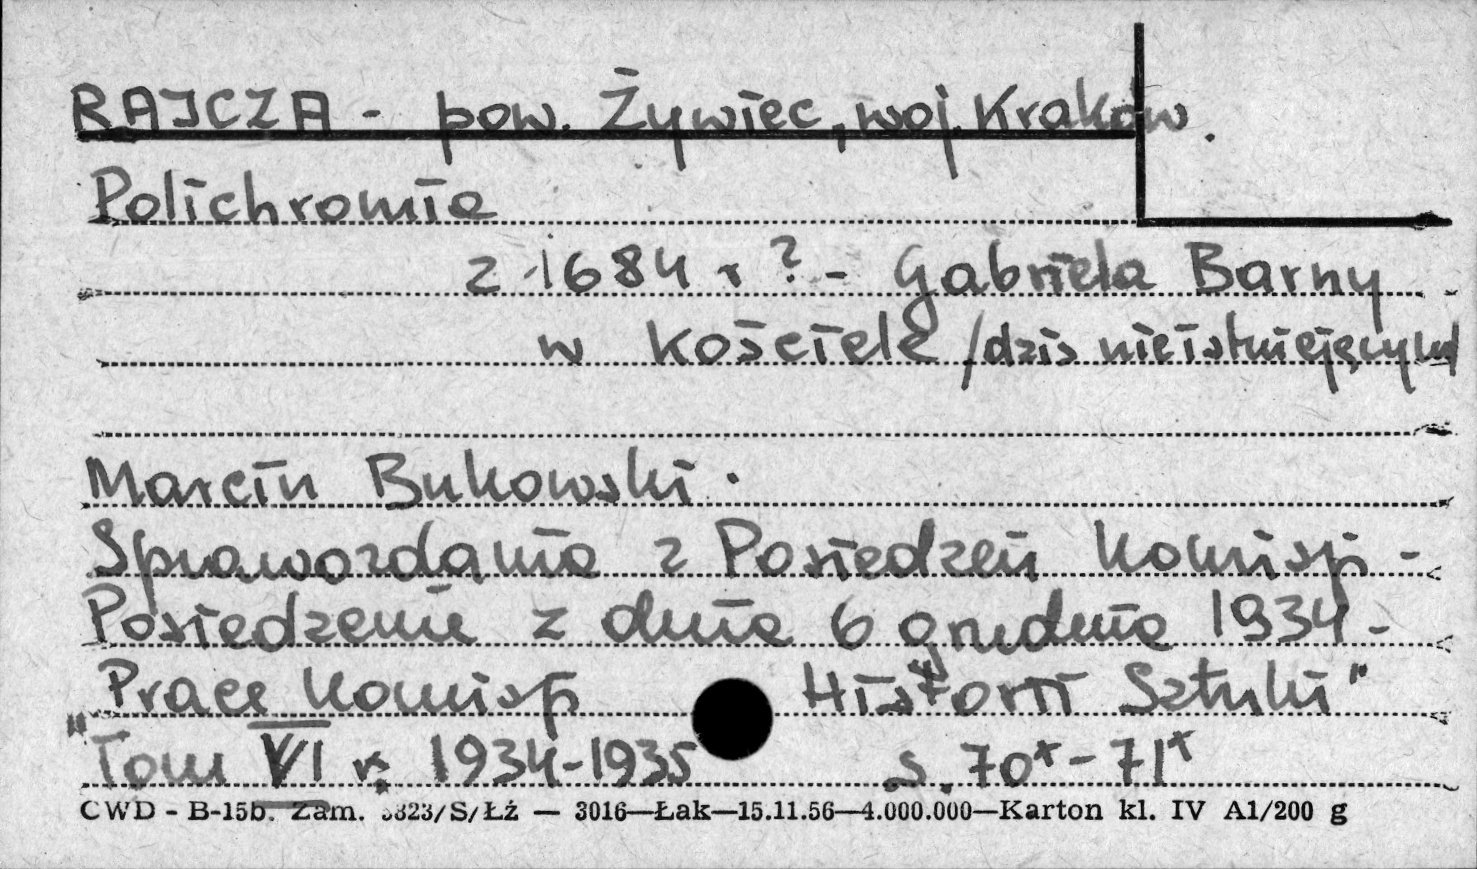 RAJCZA - pow. Żywiec, woj. Kraków.
Polichromia
z 1684 r ? - Gabriela Barny
w kościele /dziś nieistniejącym/
Marcin Bukowski.
Sprawozdania z Posiedzeń Komisji -
Posiedzenie z dnia 6 grudnia 1934 -
"Prace Komisji Historii Sztuki"
Tom VI r. 1934-1935 s. 70*-71*
CWD - B-15b. Zam. 3823/S/Łź — 3016—Łak—15.11.56—4.000.000—Karton kl. IV A1/200 g